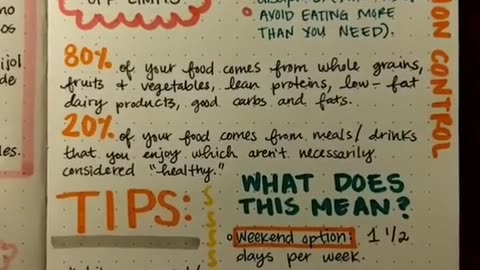 OFF LIMITS
AVOID EATING MORE
THAN YOU NEED).
ION CONTROL
80% of your food comes from whole grains,
fruits + vegetables, lean proteins, low-fat
dairy products, good carbs and fats.
20% of your food comes from meals/drinks
that you enjoy which aren't necessarily
considered "healthy."
TIPS:
WHAT DOES
THIS MEAN?
Weekend option: 1 1/2
days per week.